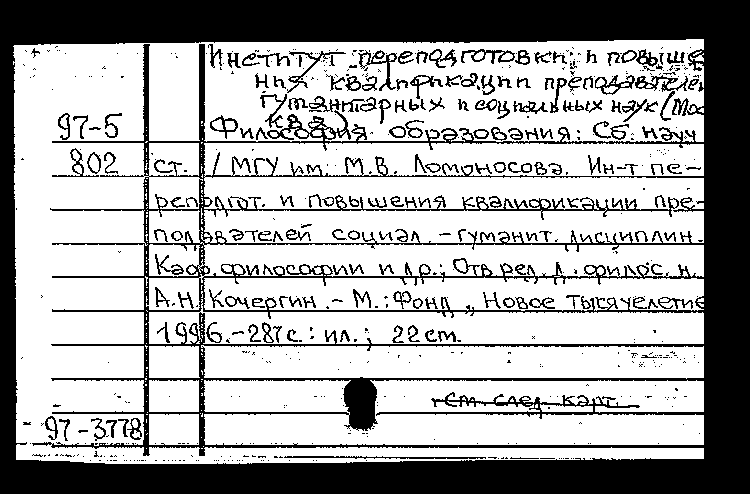 Институт переподготовки и повыше
ния квалификации преподавателей
гуманитарных и социальных наук (Мос
ква)
97-5 Философия образования: Сб. науч
802 ст. / МГУ им. М.В. Ломоносова. Ин-т пе-
реподгот. и повышения квалификации пре-
подавателей социал.-гуманит. дисциплин.
Каф. философии и др.; Отв ред. д. филос. н.
А.Н. Кочергин. - М.: Фонд „Новое тысячелетие
1996. - 287 с.: ил.; 22 см.
См. след. карт.
97-3778